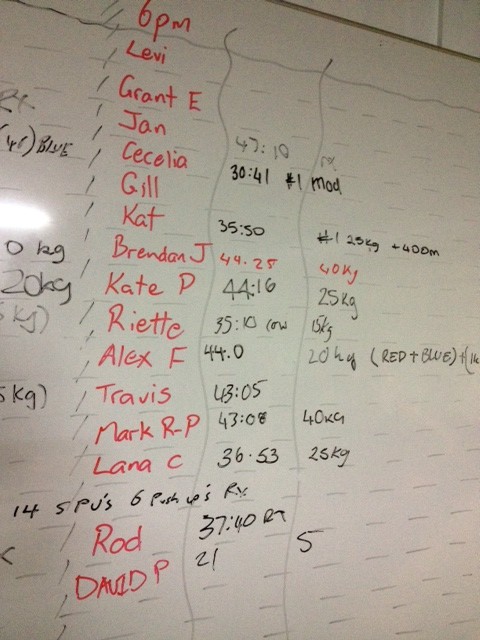 6pm
Levi
Grant E
Jan
(45) BLUE
Cecelia 47:10 rx
Gill 30:41 #1 Mod
Kat 35:50 #1 25kg +400m
0 kg Brendan J 44.25 40kg
20kg Kate P 44:16 25kg
kg) Riette 35:10 row 15kg
Alex F 44.0 20kg (RED+BLUE)+(
5kg) Travis 43:05
Mark R-P 43:08 40KG
Lana C 36.53 25kg
14 5 PU's 6 Push up's Rx
Rod 37:40 RX
DAVID P 21 5